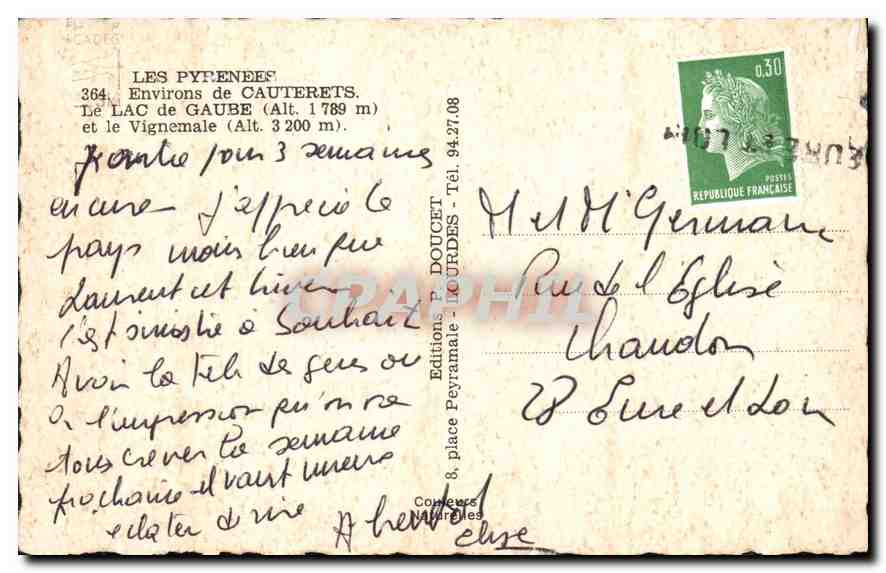 LES PYRENEES
364. Environs de CAUTERETS.
Le LAC de GAUBE (Alt. 1 789 m)
et le Vignemale (Alt. 3 200 m).
pour 3 semaines
j'apprécie le
pays mais bien que
Laurent cet hiver
c'est sinistre à Souhait
Avoir la tête de gens on
a l'impression qu'on va
tous crever la semaine
prochaine il vaut mieux
eclater de rire
A bientot
Elise
Editions P. DOUCET
8, place Peyramale - LOURDES - Tél. 94.27.08
Couleurs
Naturelles
CPAPHIL
0,30
POSTES
REPUBLIQUE FRANÇAISE
EURE ET LOIR
M et Me Germain
Rue de l'Eglise
Chaudon
28 Eure et Loir